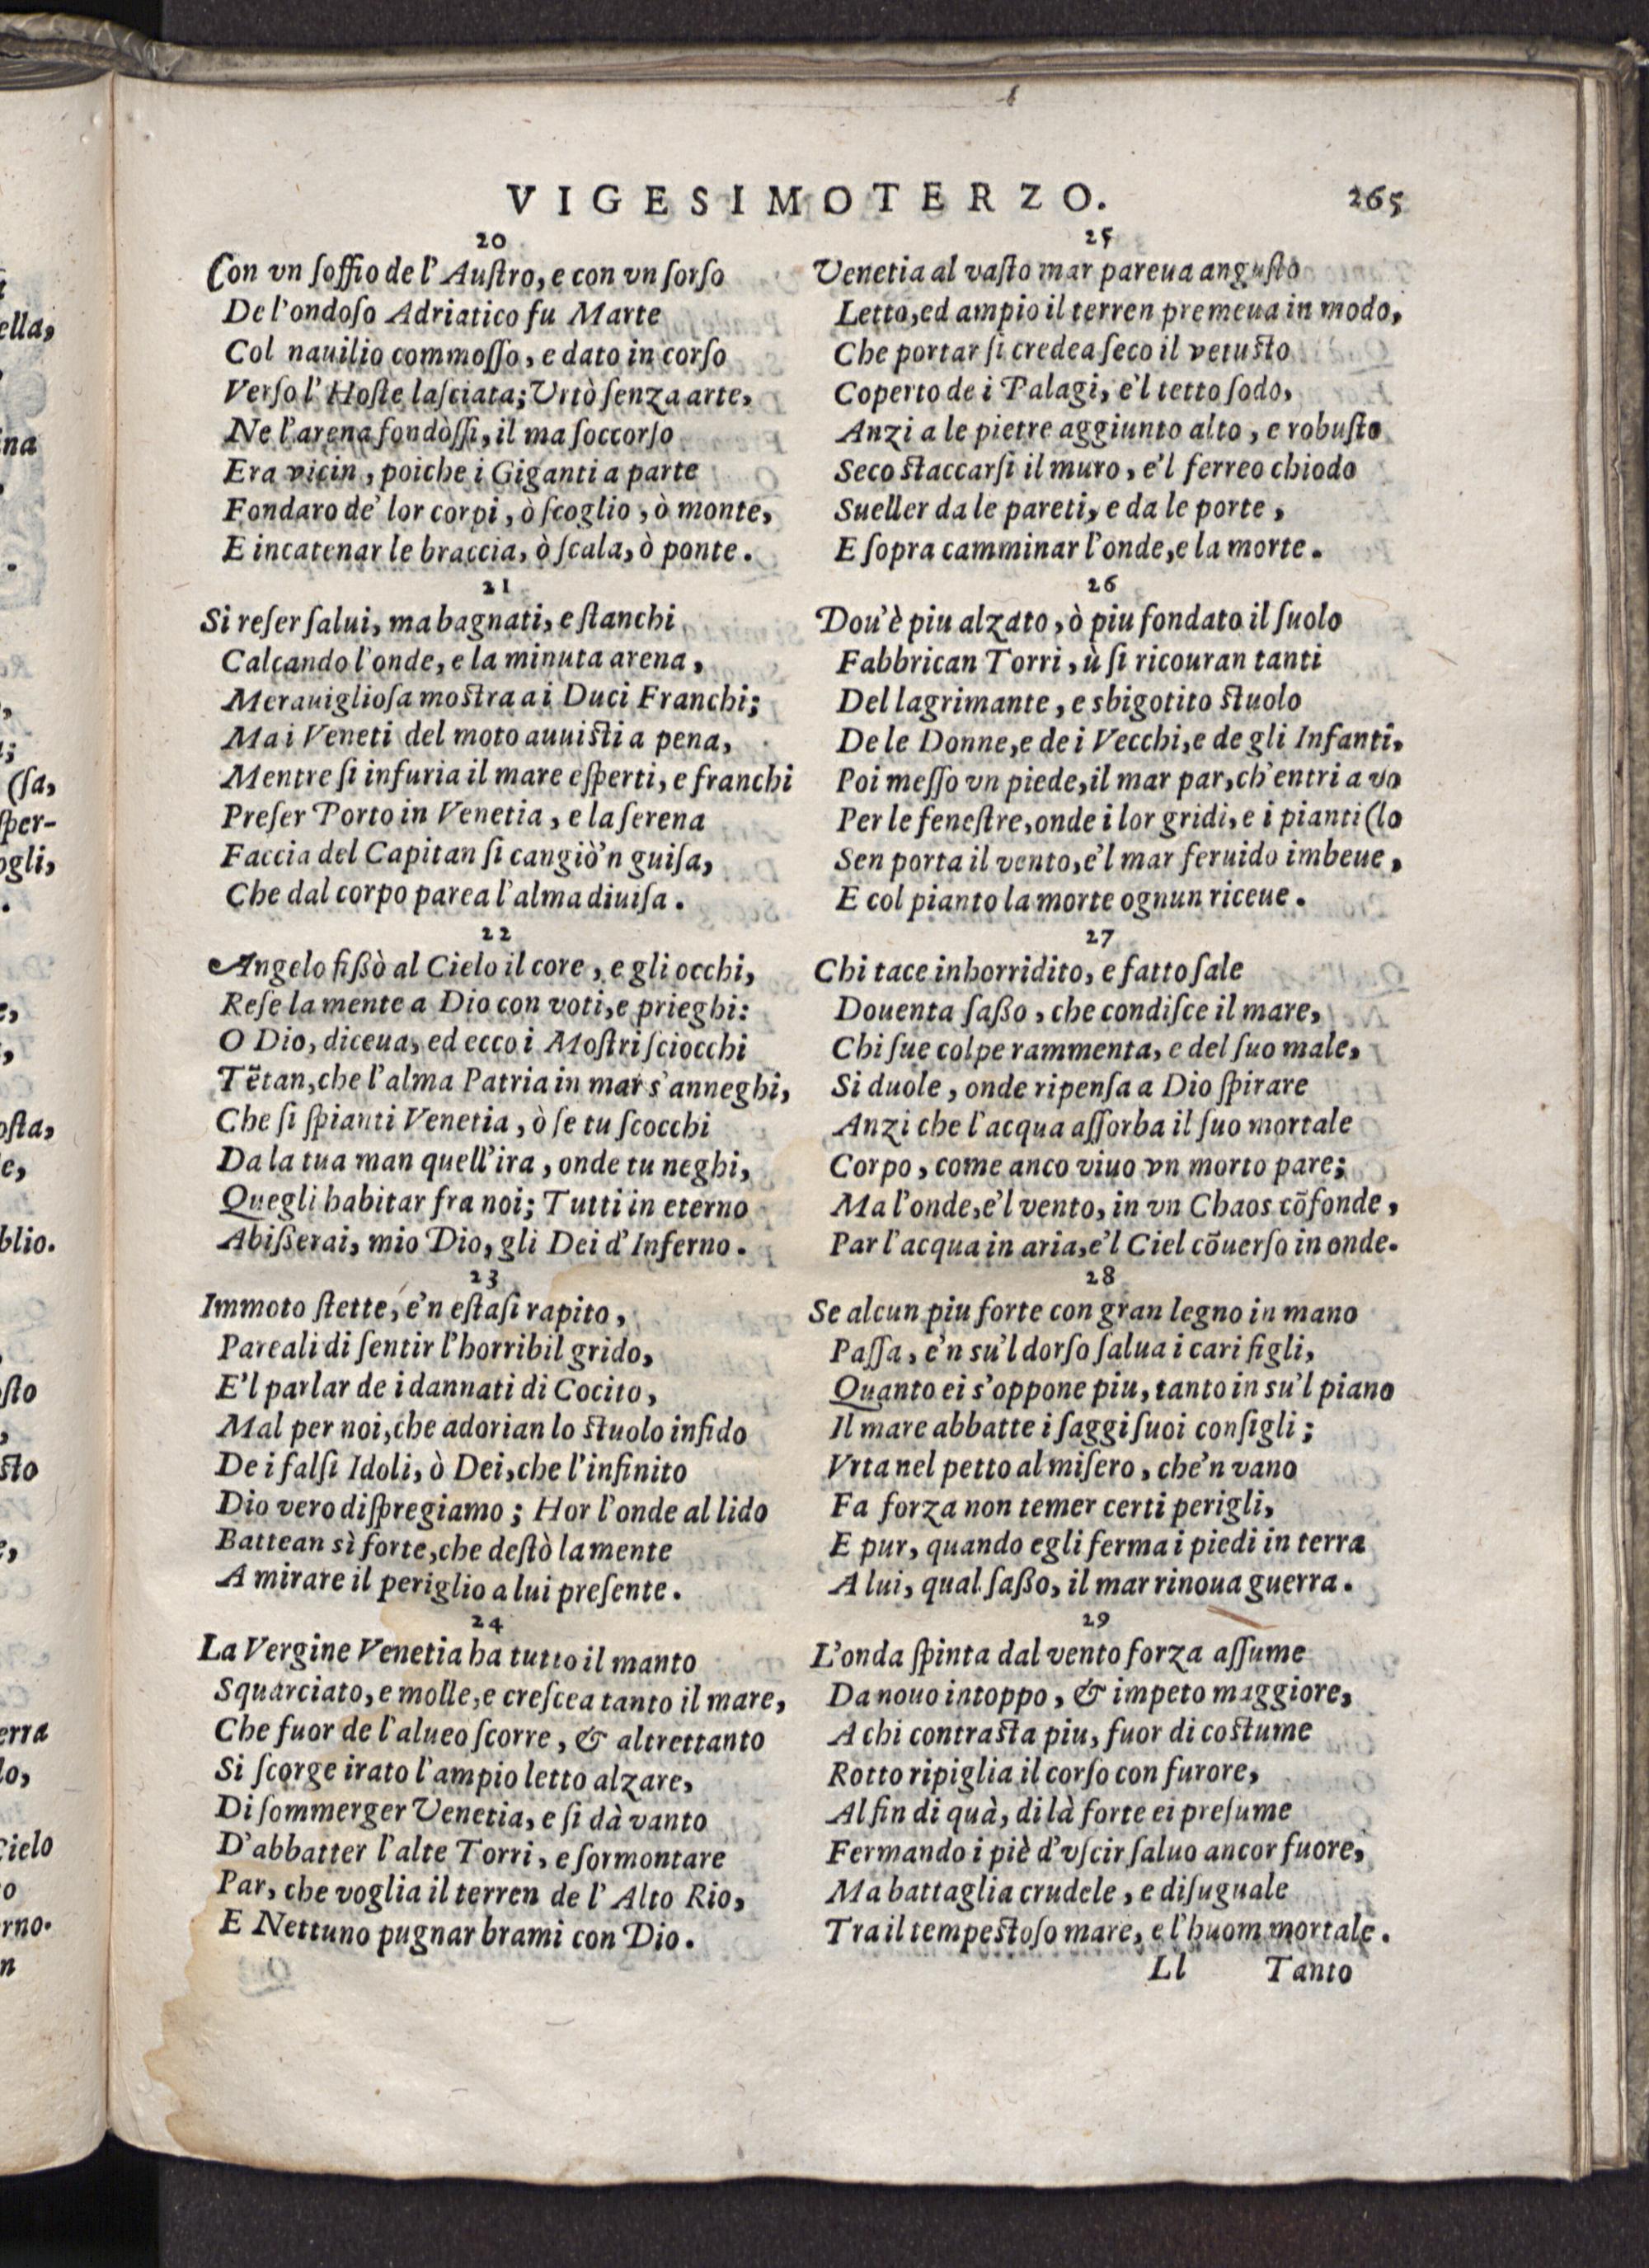 VIGESIMOTERZO. 265
20
Con vn ſoffio de l' Auſtro, e con vn ſorſo
De l'ondoſo Adriatico fu Marte
Col nauilio commoſſo, e dato in corſo
Verſo l' Hoſte laſciata; Vrtò ſenza arte,
Ne l'arena fondòſſi, il ma ſoccorſo
Era vicin, poiche i Giganti a parte
Fondaro de' lor corpi, ò ſcoglio, ò monte,
E incatenar le braccia, ò ſcala, ò ponte.
21
Si reſer ſalui, ma bagnati, e ſtanchi
Calcando l'onde, e la minuta arena,
Merauiglioſa moſtra a i Duci Franchi;
Ma i Veneti del moto auuiſti a pena,
Mentre ſi infuria il mare eſperti, e franchi
Preſer Porto in Venetia, e la ſerena
Faccia del Capitan ſi cangiò'n guiſa,
Che dal corpo parea l'alma diuiſa.
22
Angelo fißò al Cielo il core, e gli occhi,
Reſe la mente a Dio con voti, e prieghi:
O Dio, diceua, ed ecco i Moſtri ſciocchi
Tẽtan, che l'alma Patria in mar s'anneghi,
Che ſi ſpianti Venetia, ò ſe tu ſcocchi
Da la tua man quell'ira, onde tu neghi,
Quegli habitar fra noi; Tutti in eterno
Abißerai, mio Dio, gli Dei d' Inferno.
23
Immoto ſtette, e'n eſtaſi rapito,
Pareali di ſentir l'horribil grido,
E'l parlar de i dannati di Cocito,
Mal per noi, che adorian lo ſtuolo infido
De i falſi Idoli, ò Dei, che l'infinito
Dio vero diſpregiamo; Hor l'onde al lido
Battean sì forte, che deſtò la mente
A mirare il periglio a lui preſente.
24
La Vergine Venetia ha tutto il manto
Squarciato, e molle, e creſcea tanto il mare,
Che fuor de l'alueo ſcorre, & altrettanto
Si ſcorge irato l'ampio letto alzare,
Di ſommerger Venetia, e ſi dà vanto
D'abbatter l'alte Torri, e ſormontare
Par, che voglia il terren de l' Alto Rio,
E Nettuno pugnar brami con Dio.
25
Venetia al vaſto mar pareua anguſto
Letto, ed ampio il terren premeua in modo,
Che portar ſi credea ſeco il vetuſto
Coperto de i Palagi, e'l tetto ſodo,
Anzi a le pietre aggiunto alto, e robuſto
Seco ſtaccarſi il muro, e'l ferreo chiodo
Sueller da le pareti, e da le porte,
E ſopra camminar l'onde, e la morte.
26
Dou'è piu alzato, ò piu fondato il ſuolo
Fabbrican Torri, ù ſi ricouran tanti
Del lagrimante, e sbigotito ſtuolo
De le Donne, e de i Vecchi, e de gli Infanti,
Poi meſſo vn piede, il mar par, ch'entri a vo
Per le feneſtre, onde i lor gridi, e i pianti (lo
Sen porta il vento, e'l mar feruido imbeue,
E col pianto la morte ognun riceue.
27
Chi tace inhorridito, e fatto ſale
Douenta ſaßo, che condiſce il mare,
Chi ſue colpe rammenta, e del ſuo male,
Si duole, onde ripenſa a Dio ſpirare
Anzi che l'acqua aſſorba il ſuo mortale
Corpo, come anco viuo vn morto pare;
Ma l'onde, e'l vento, in vn Chaos cõfonde,
Par l'acqua in aria, e'l Ciel cõuerſo in onde.
28
Se alcun piu forte con gran legno in mano
Paſſa, e'n su'l dorſo ſalua i cari figli,
Quanto ei s'oppone piu, tanto in su'l piano
Il mare abbatte i ſaggi ſuoi conſigli;
Vrta nel petto al miſero, che'n vano
Fa forza non temer certi perigli,
E pur, quando egli ferma i piedi in terra
A lui, qual ſaßo, il mar rinoua guerra.
29
L'onda ſpinta dal vento forza aſſume
Da nouo intoppo, & impeto maggiore,
A chi contraſta piu, fuor di coſtume
Rotto ripiglia il corſo con furore,
Al fin di quà, di là forte ei preſume
Fermando i piè d'vſcir ſaluo ancor fuore,
Ma battaglia crudele, e diſuguale
Tra il tempeſtoſo mare, e l'huom mortale.
Ll Tanto